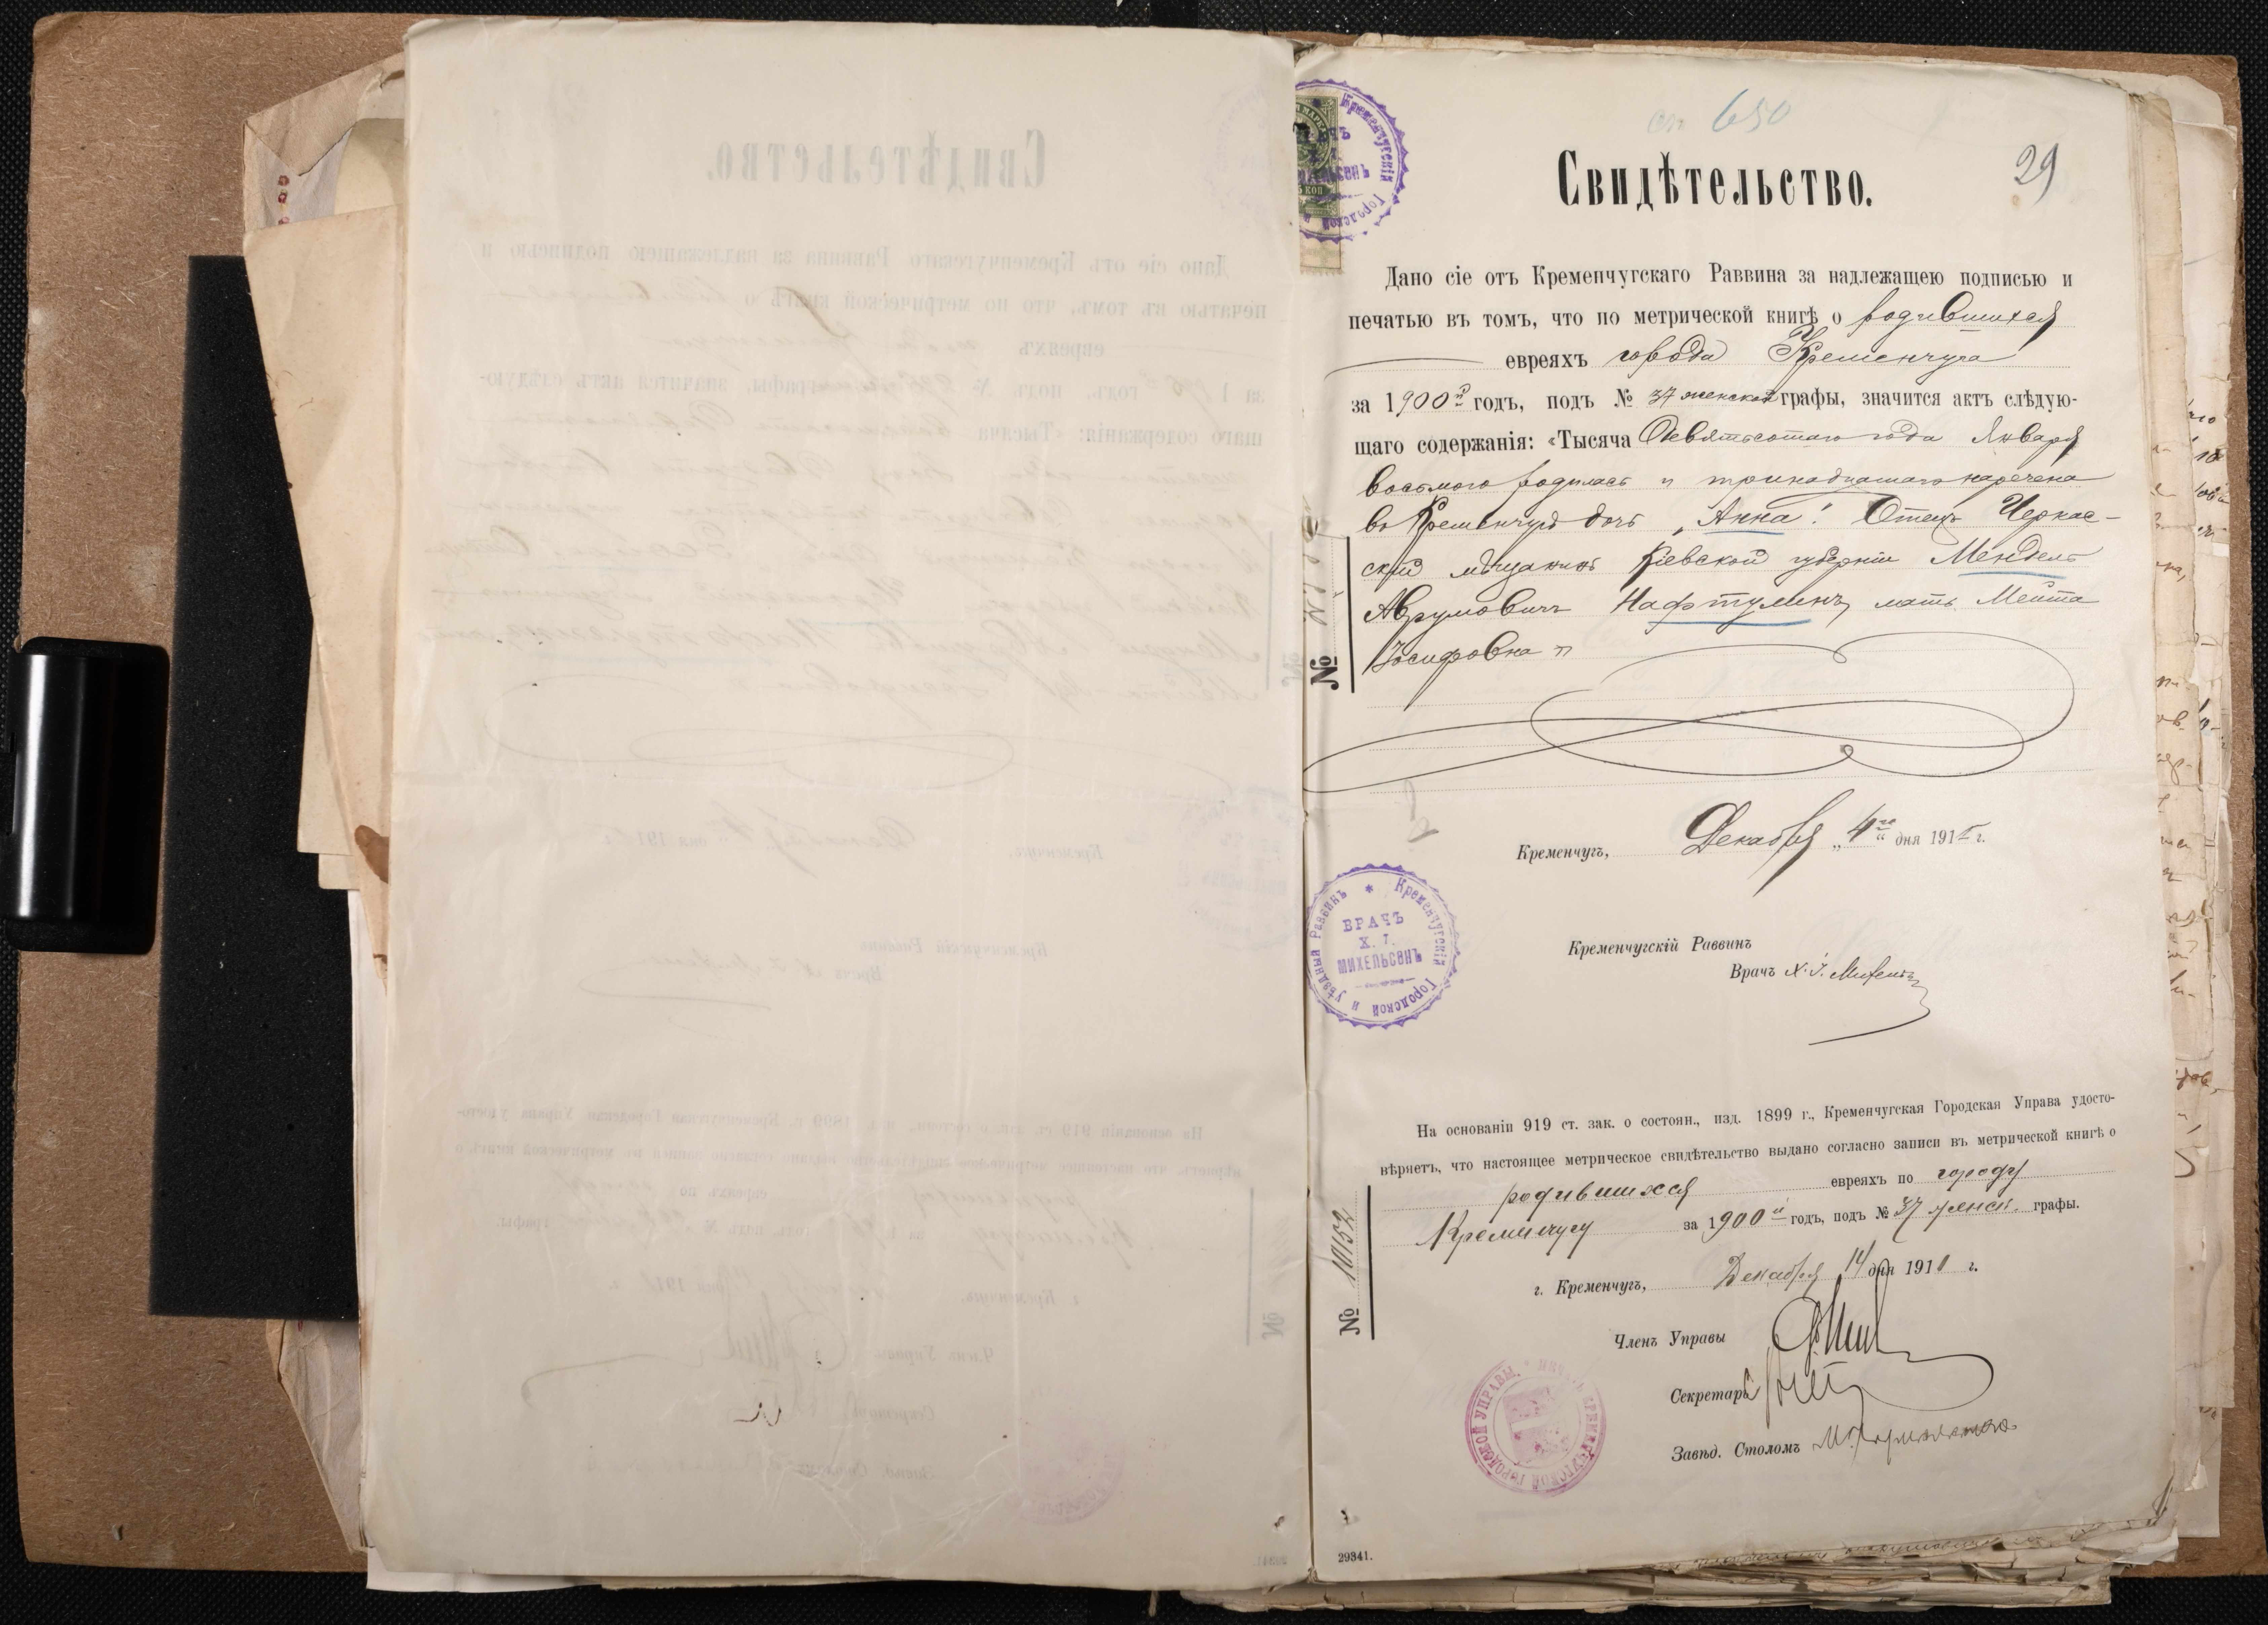 650
29
Свидѣтельство.
Дано сіе отъ Кременчугскаго Раввина за надлежащею подписью и
печатью въ томъ, что по метрической книгѣ о родившихся
евреяхъ города Кременчуга
за 1900й годъ, подъ № 37 женской графы, значится актъ слѣдую-
щаго содержанія: «Тысяча Девятьсотаго года Января
восьмого родилась и тринадцатаго наречена
въ Кременчугѣ дочь „Анна". Отецъ Черкас-
скій мѣщанинъ Кіевской губерніи Мендель
Аврумовичъ Нафтулинъ, мать Меита
Іосифовна"
№
Кременчугъ, Декабря „4го" дня 191 г.
Кременчугскій Раввинъ
Врачъ Х. І. Михельсонъ
Кременчугскій Городской и уѣздный Раввинъ
ВРАЧЪ
Х. І.
МИХЕЛЬСОНЪ
На основаніи 919 ст. зак. о состоян., изд. 1899 г., Кременчугская Городская Управа удосто-
вѣряетъ, что настоящее метрическое свидѣтельство выдано согласно записи въ метрической книгѣ о
родившихся евреяхъ по городу
Кременчугу за 1900й годъ, подъ № 37 женск. графы.
№ 10152
г. Кременчугъ, Декабря 14 дня 1911 г.
Членъ Управы
Секретарь
Завѣд. Столомъ
29341.